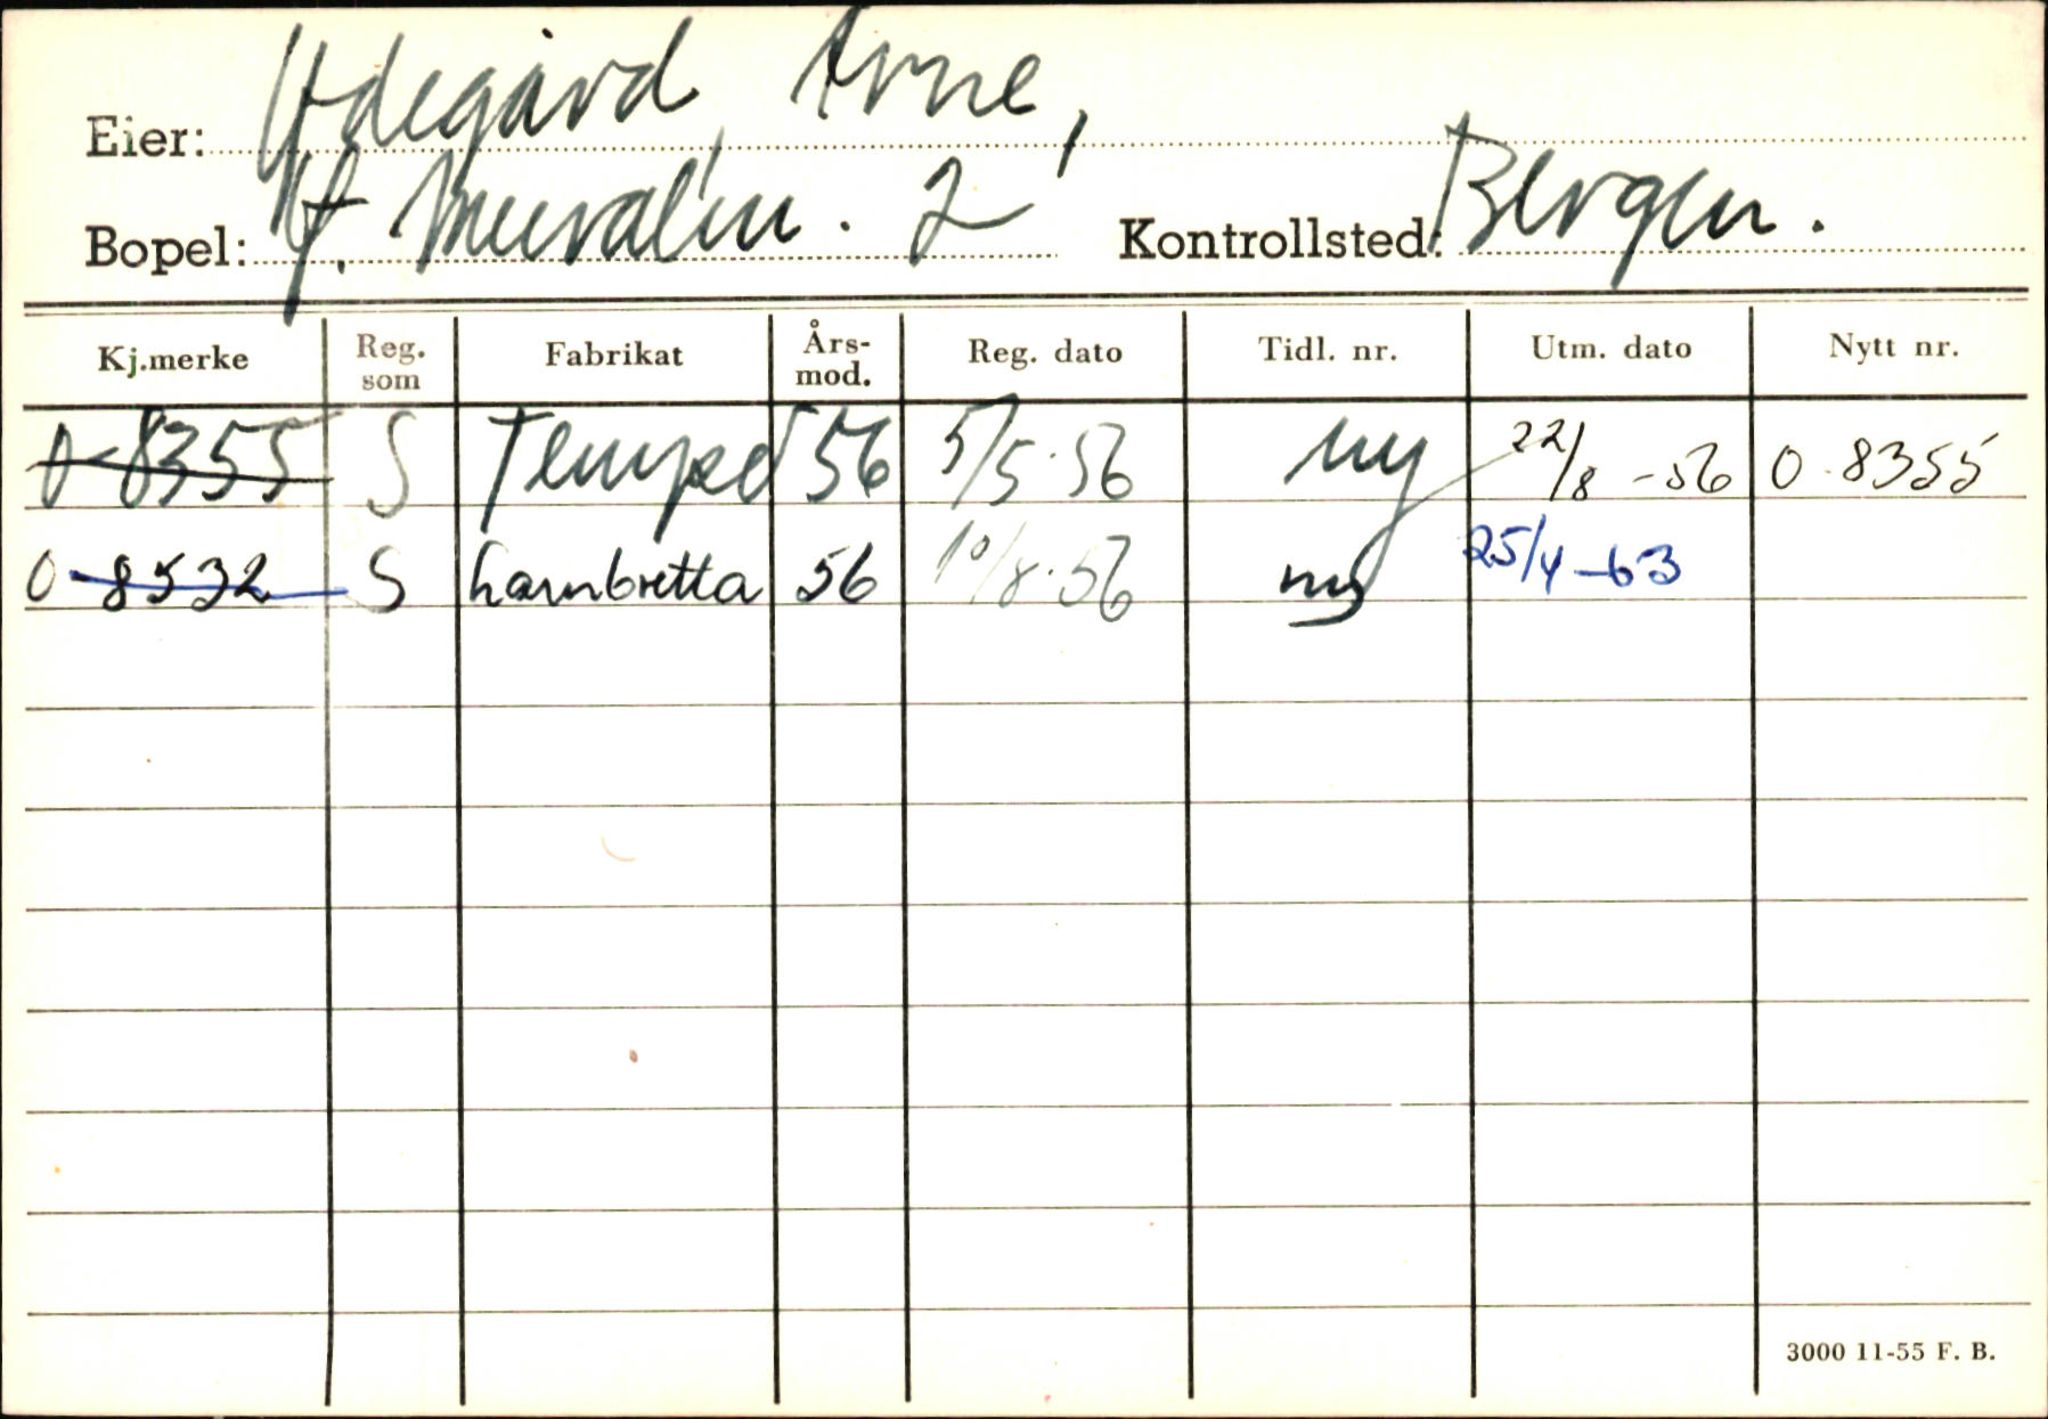 Eier: Ydegård, Arne,
Bopel: Y. 2 Kontrollsted: Bergen.
Kj.merke Reg. som Fabrikat Års-mod. Reg. dato Tidl. nr. Utm. dato Nytt nr.
O-8355 S Tempo 56 5/5-56 ny 22/8-56 O-8355
O-8532 S Lambretta 56 10/8-56 ny 25/4-63
3000 11-55 F. B.